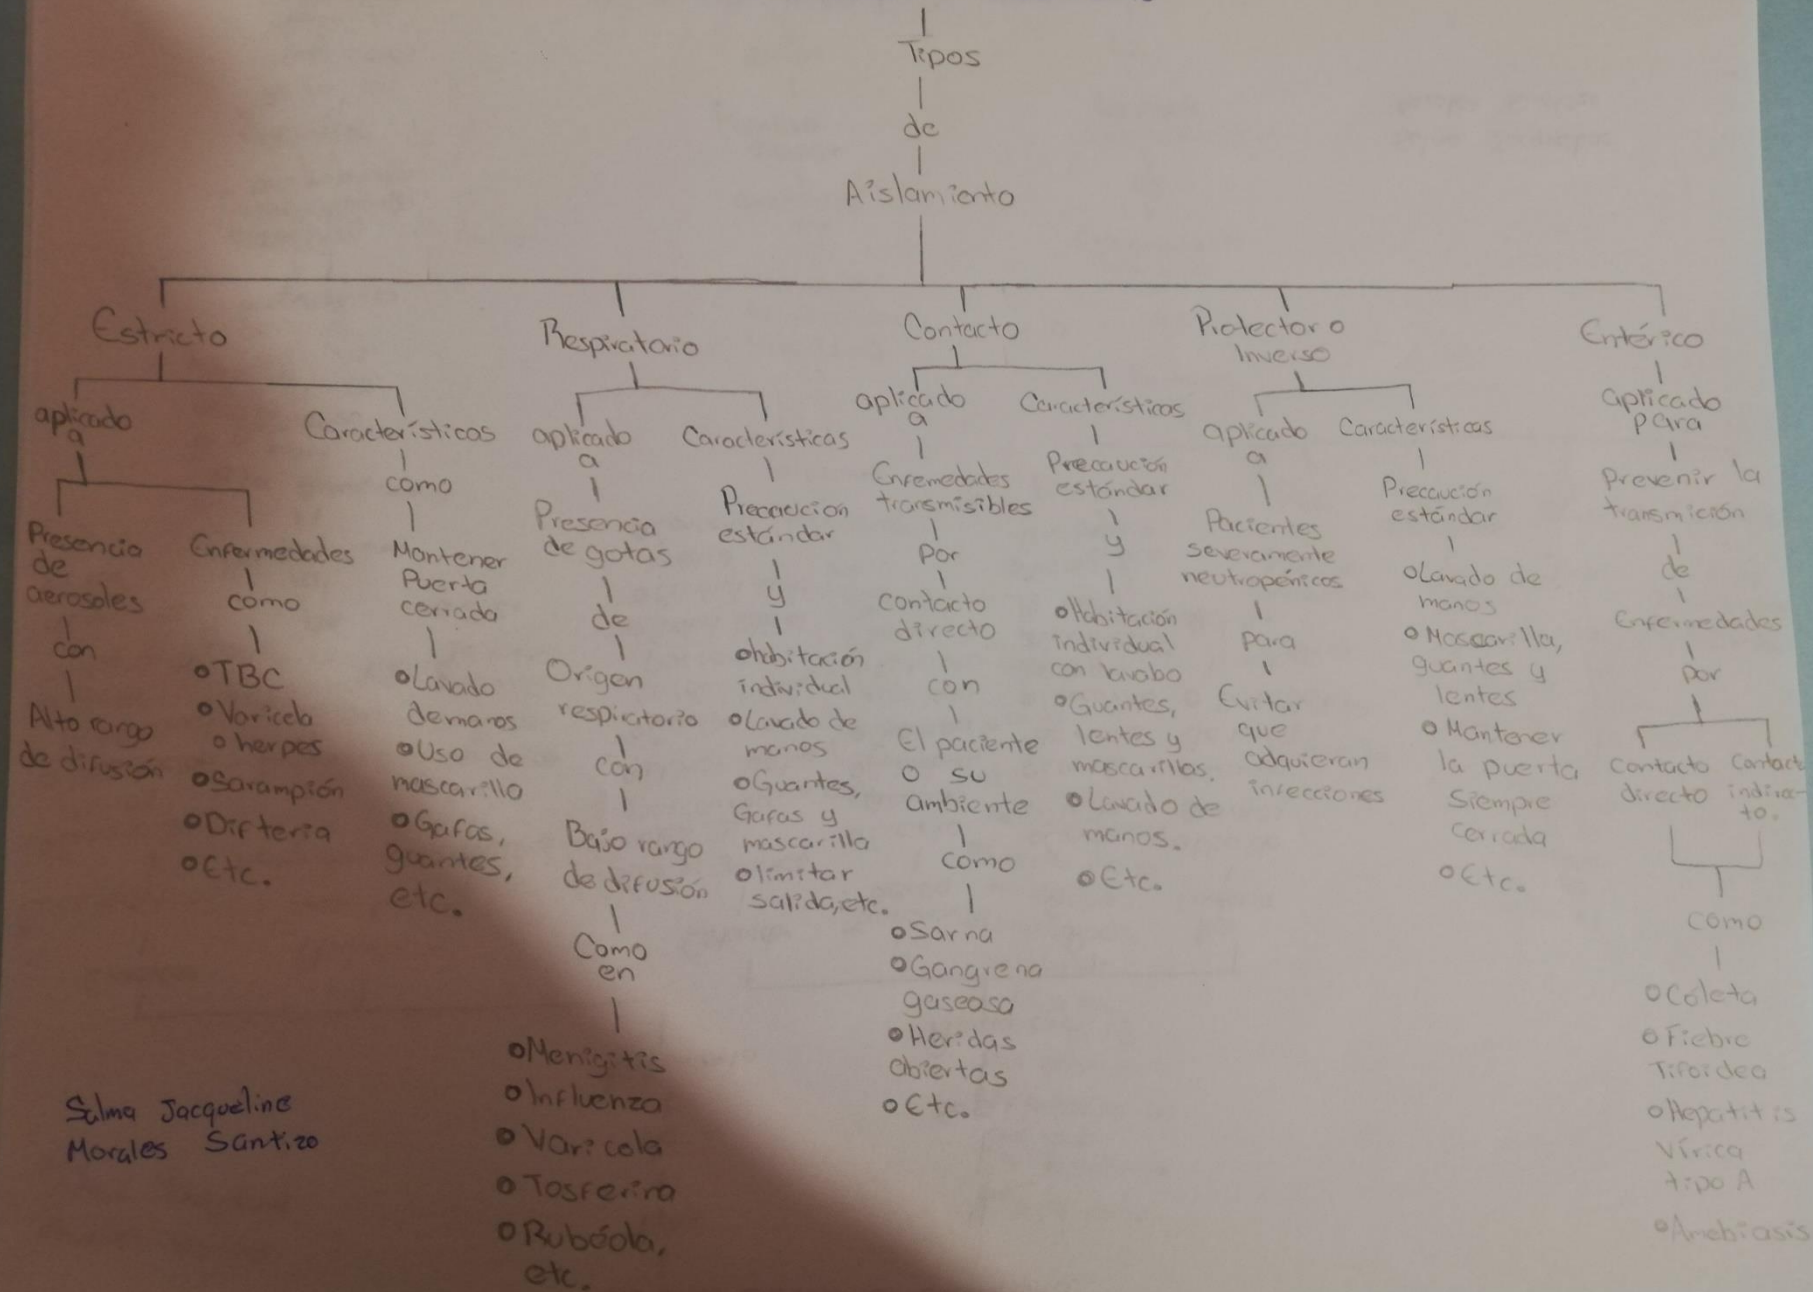 Tipos
de
Aislamiento
Estricto
aplicado
a
Presencia
de
aerosoles
con
Alto rango
de difusión
Enfermedades
como
TBC
Varicela
herpes
Sarampión
Difteria
Etc.
Características
como
Mantener
Puerta
cerrada
Lavado
demanos
Uso de
mascarilla
Gafas,
guantes,
etc.
Respiratorio
aplicado
a
Presencia
de gotas
de
Origen
respiratorio
con
Bajo rango
de difusión
Como
en
Menigitis
Influenza
Varicela
Tosferina
Rubéola,
etc.
Características
Precaucion
estándar
y
habitación
individual
Lavado de
manos
Guantes,
Gafas y
mascarilla
limitar
salida, etc.
Contacto
aplicado
a
Enfemedades
transmisibles
por
contacto
directo
con
El paciente
o su
ambiente
como
Sarna
Gangrena
gaseosa
Heridas
abiertas
Etc.
Características
Precaución
estándar
y
Habitación
individual
con lavabo
Guantes,
lentes y
mascarillas.
Lavado de
manos.
Etc.
Protector o
Inverso
aplicado
a
Pacientes
severamente
neutropénicos
para
Evitar
que
adquieran
infecciones
Características
Precaución
estándar
Lavado de
manos
Mascarilla,
guantes y
lentes
Mantener
la puerta
Siempre
cerrada
Etc.
Entérico
aplicado
para
Prevenir la
transmición
de
Enfermedades
por
Contacto
directo
Contact
indirec-
to.
como
Coleta
Fiebre
Tifoidea
Hepatitis
Vírica
tipo A
Amebiasis
Selma Jacqueline
Morales Santizo